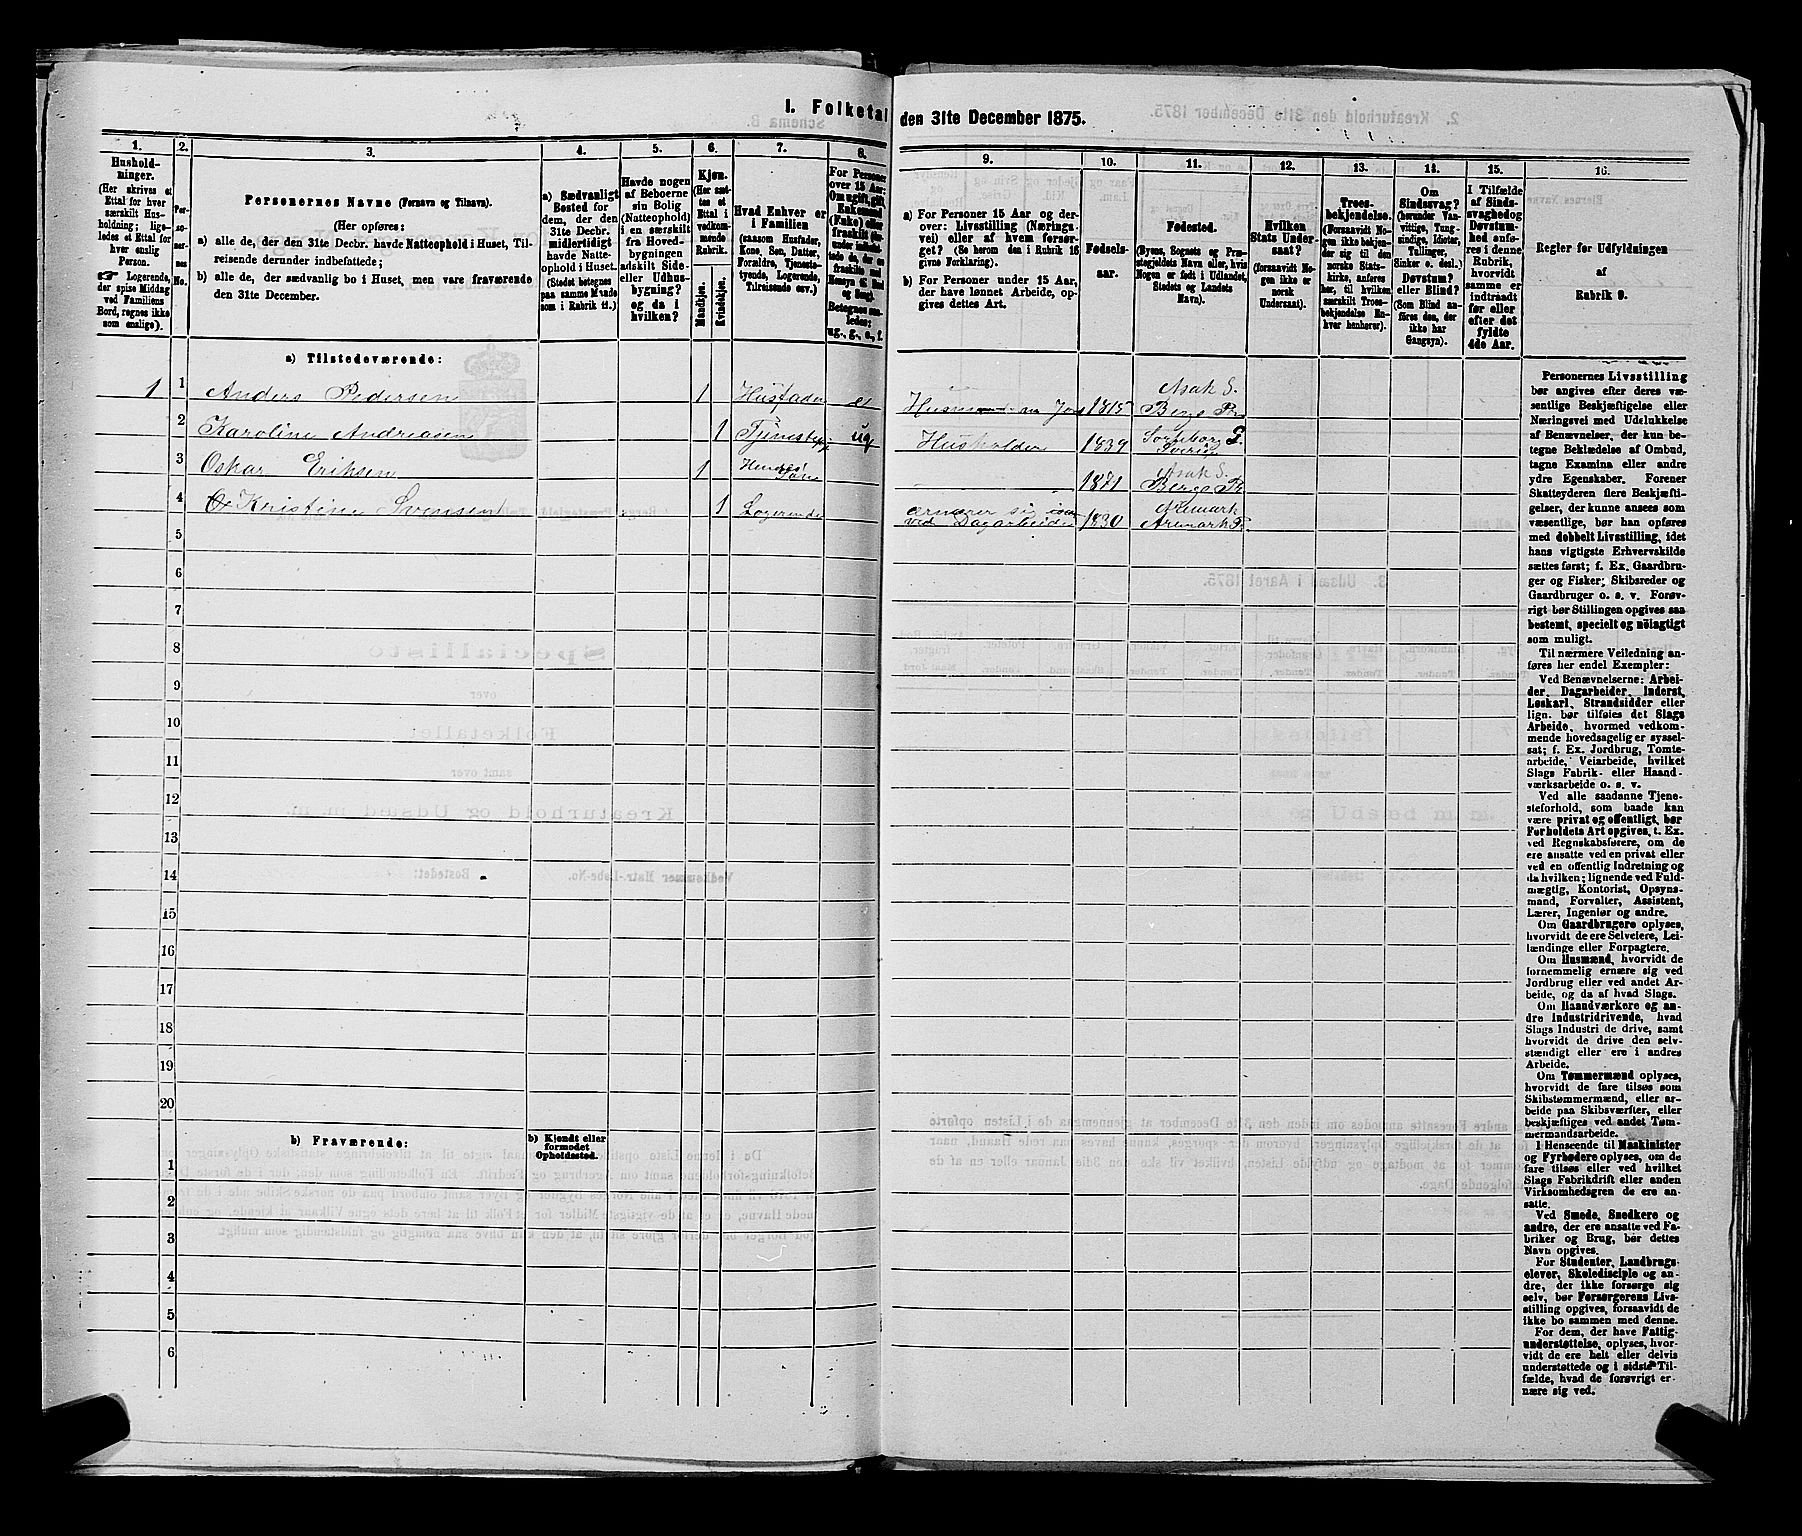 I. Folketal den 31te December 1875.
1.
Hushold-
ninger.
(Her skrives et
Ettal for hver
særskilt Hus-
holdning; lige-
ledes et Ettal for
hver enslig
Person.
Logerende,
der spise Middag
ved Familiens
Bord, regnes ikke
som enslige).
2.
Per-
so-
ner-
nes
No.
3.
Personernes Navne (Fornavn og Tilnavn).
(Her opføres:
a) alle de, der den 31te Decbr. havde Natteophold i Huset, Til-
reisende derunder indbefattede;
b) alle de, der sædvanlig bo i Huset, men vare fraværende
den 31te December.
4.
a) Sædvanligt
Bosted for
dem, der den
31te Decbr.
midlertidigt
havde Natte-
ophold i Huset.
(Stedet betegnes
paa samme Maade
som i Rubrik 11.)
5.
Havde nogen
af Beboerne
sin Bolig
(Natteophold)
i en særskilt
fra Hoved-
bygningen
adskilt Side-
eller Udhus-
bygning?
og da i
hvilken?
6.
Kjøn.
(Her sæt-
tes et
Ettal i
vedkom-
mende
Rubrik.
Mandkjøn.
Kvindekjøn.
7.
Hvad Enhver er
i Familien
(saasom Husfader,
Kone, Søn, Datter,
Forældre, Tjeneste-
tyende, Logerende,
Tilreisende osv.)
8.
For Personer
over 15 Aar:
9.
a) For Personer 15 Aar og der-
over: Livsstilling (Nærings-
vei) eller af hvem forsør-
get? (Se herom den i Rubrik 16
givne Forklaring).
b) For Personer under 15 Aar,
der have lønnet Arbeide, op-
gives dettes Art.
10.
Fødsels-
aar.
11.
Fødested.
(Byens, Sognets og Præ-
stegjeldets Navn eller, hvis
Nogen er født i Udlandet,
Stedets og Landets
Navn).
12.
Hvilken
Stats Under-
saat?
(forsaavidt No-
gen ikke er
norsk
Undersaat).
13.
Troes-
bekjendelse.
(Forsaavidt No-
gen ikke bekjen-
der sig til den
norske Stats-
kirke, anføres
her, til hvilken
særskilt Troes-
bekjendelse En-
hver henhører).
14.
Om
Sindssvag?
(herunder Van-
vittige, Tung-
sindige, Idioter,
Tullinger,
Sinker o. desl.)
Døvstum?
eller Blind?
(Som Blind an-
føres den, der
ikke har
Gangsyn).
15.
I Tilfælde
af Sinds-
svaghed og
Døvstum-
hed anfø-
res i denne
Rubrik,
hvorvidt
samme er
indtraadt
før eller
efter det
fyldte
4de Aar.
16.
Regler for Udfyldningen
af
Rubrik 9.
a) Tilstedeværende:
1 1 Anders Pedersen 1 Husfader 1815 Asak S. Berge
2 Karoline Andreasen 1 ug 1839
3 Oskar Eriksen 1 Hendes Søn 1871 Asak S. Berge
4 Kristine Svensen 1 Logerende ernærer sig ved Dagarbeide 1830 Aremark Aremark P.
5
6
7
8
9
10
11
12
13
14
15
16
17
18
19
20
b) Fraværende:
b) Kjendt eller
formodet
Opholdssted.
1
2
3
4
5
6
Personernes Livsstilling
bør angives efter deres væ-
sentlige Beskjæftigelse eller
Næringsvei med Udelukkelse
af Benævnelser, der kun be-
tegne Bekladelse af Ombud,
tagne Examina eller andre
ydre Egenskaber. Forener
Skatteyderen flere Beskjæfti-
gelser, der kunne ansees som
væsentlige, bør han opføres
med dobbelt Livsstilling, idet
hans vigtigste Erhvervskilde
sættes først; f. Ex. Gaardbru-
ger og Fisker; Skibsreder og
Gaardbruger o. s. v. Forøv-
rigt bør Stillingen opgives saa
bestemt, specielt og nöiagtigt
som muligt.
Til nærmere Veiledning an-
føres her endel Exempler:
Ved Benævnelserne: Arbei-
der, Dagarbeider, Inderst,
Løskarl, Strandsidder eller
lign. bør tilføies det Slags
Arbeide, hvormed vedkom-
mende hovedsagelig er syssel-
sat; f. Ex. Jordbrug, Tomte-
arbeide, Veiarbeide, hvilket
Slags Fabrik- eller Haand-
værksarbeide o. s. v.
Ved alle saadanne Tjene-
steforhold, som baade kan
være privat og offentligt, bør
Forholdets Art opgives, t. Ex.
ved Regnskabsførere, om de
ere ansatte ved en privat eller
ved en offentlig Indretning og
da hvilken; lignende ved Fuld-
mægtig, Kontorist, Opsyns-
mand, Forvalter, Assistent,
Lærer, Ingeniør og andre.
Om Gaardbrugere oplyses,
hvorvidt de ere Selveiere, Lei-
lændinge eller Forpagtere.
Om Husmænd, hvorvidt de
fornemmelig ernære sig ved
Jordbrug eller ved andet Ar-
beide, og da af hvad Slags.
Om Haandværkere og an-
dre Industridrivende, hvad
Slags Industri de drive, samt
hvorvidt de drive den selv-
stændigt eller ere i andres
Arbeide.
Om Tømmermænd oplyses,
hvorvidt de fare tilsøs som
Skibstømmermænd, eller ar-
beide paa Skibsværfter, eller
beskjæftiges ved andet Tøm-
mermandsarbeide.
I Henseende til Maskinister
og Fyrbødere oplyses, om de
fare tilsøs eller ved hvilket
Slags Fabrikdrift eller anden
Virksomhedsgren de ere an-
satte.
Ved Smede, Snedkere og
andre, der ere ansatte ved Fa-
briker og Brug, bør dettes
Navn opgives.
For Studenter, Landbrugs-
elever, Skoledisciple og an-
dre, der ikke forsørge sig
selv, bør Forsørgerens Livs-
stilling opgives, forsaavidt de
ikke bo sammen med denne.
For dem, der have Fattig-
understøttelse, oplyses, hvor-
vidt de ere helt eller delvis
understøttede og i sidste Til-
fælde, hvad de forøvrigt er-
nære sig ved.